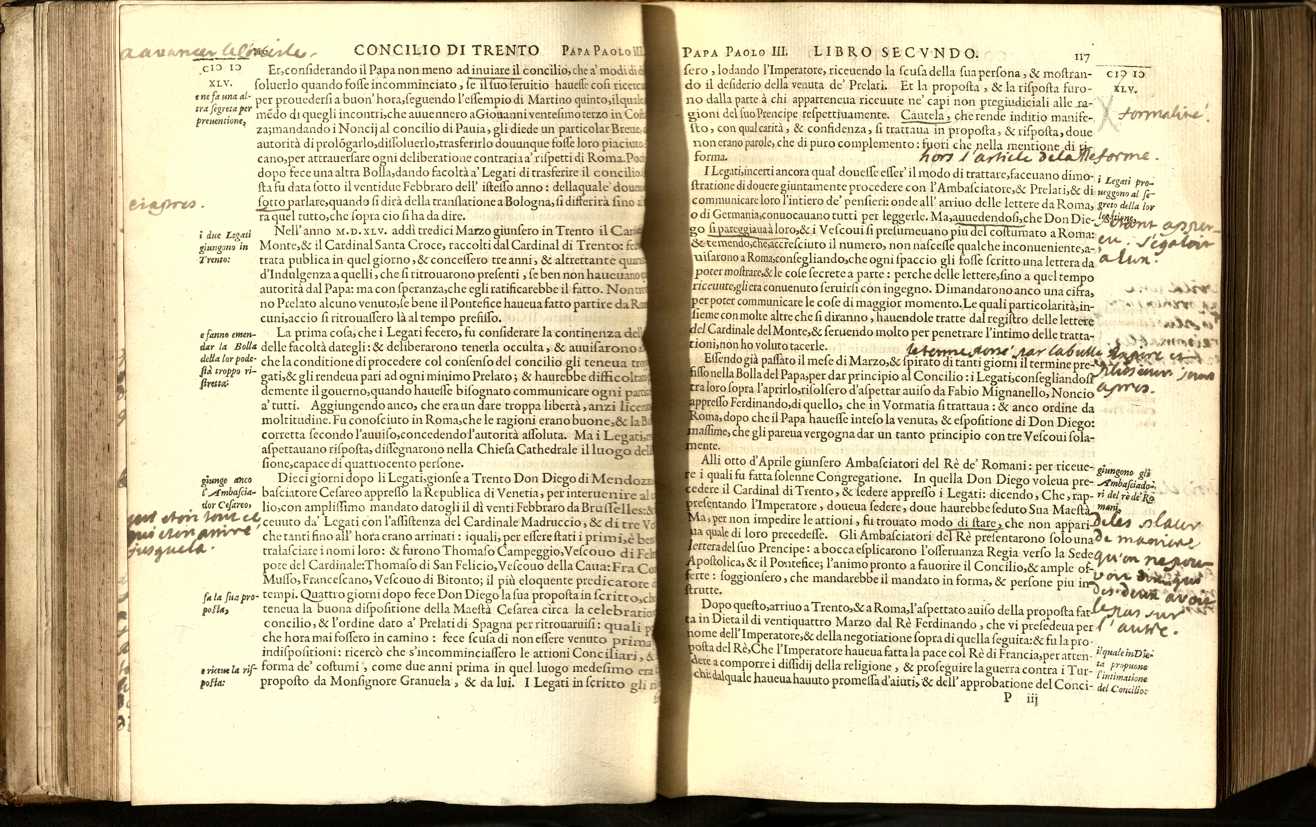 a avancer le
116 CONCILIO DI TRENTO PAPA PAOLO III.
CIↃ IↃ
XLV.
e ne fa una al-
tra segreta per
preuentione,
Et, considerando il Papa non meno ad inuiare il concilio, che a' modi di
soluerlo quando fosse incominciato, se il suo seruitio hauesse cosi
per prouedersi a buon' hora, seguendo l'essempio di Martino quinto, il quale
médo di quegli incontri, che auuennero a Giouanni ventesimo terzo in
za; mandando i Noncij al concilio di Pauia, gli diede un particolar Breue,
autorità di prológarlo, dissoluerlo, trasferirlo douunque fosse loro piaciuto:
cano, per attrauersare ogni deliberatione contraria a' rispetti di Roma. Poco
dopo fece una altra Bolla, dando facoltà a' Legati di trasferire il concilio:
sta fu data sotto il ventidue Febbraro dell' istesso anno: della quale
sotto parlare, quando si dirà della translatione a Bologna, si differirà sino a
ra quel tutto, che sopra cio si ha da dire.
ci apres.
i due Legati
giungono in
Trento:
Nell' anno M. D. XLV. addì tredici Marzo giunsero in Trento il
Monte, & il Cardinal Santa Croce, raccolti dal Cardinal di Trento:
trata publica in quel giorno, & concessero tre anni, & altrettante
d'Indulgenza a quelli, che si ritrouarono presenti, se ben non haueuano
autorità dal Papa: ma con speranza, che egli ratificarebbe il fatto. Non
no Prelato alcuno venuto, se bene il Pontefice haueua fatto partire da
cuni, accio si ritrouassero là al tempo presisso.
e fanno emen-
dar la Bolla
della lor pode-
stà troppo ri-
stretta:
La prima cosa, che i Legati fecero, fu considerate la continenza
delle facoltà dategli: & deliberarono tenerla occulta, & auuisarono
che la conditione di procedere col consenso del concilio gli teneua
gati, & gli rendeua pari ad ogni minimo Prelato; & haurebbe
demente il gouerno, quando hauesse bisognato communicare ogni
a' tutti. Aggiungendo anco, che era un dare troppa libertà, anzi licenza
moltitudine. Fu conosciuto in Roma, che le ragioni erano buone, & la
corretta secondo l'auuiso, concedendo l'autorità assoluta. Ma i Legati,
aspettauano risposta, dissegnarono nella Chiesa Cathedrale il luogo
sione, capace di quattrocento persone.
giunge anco
l'Ambascia-
dor Cesareo,
Dieci giorni dopo li Legati, gionse a Trento Don Diego di Mendozza
basciatore Cesareo appresso la Republica di Venetia, per interuenire al
lio, con amplissimo mandato datogli il dì venti Febbraro da Brusselles: &
ceuuto da' Legati con l'assistenza del Cardinale Madruccio, & di tre
che tanti fino all' hora erano arriuati: i quali, per essere stati i primi, è
tralasciare i nomi loro: & furono Thomaso Campeggio, Vescouo di
pote del Cardinale: Thomaso di San Felicio, Vescouo della Caua: Fra
Musso, Francescano, Vescouo di Bitonto; il più eloquente predicatore
tempi. Quattro giorni dopo fece Don Diego la sua proposta in scritto,
teneua la buona dispositione della Maestà Cesarea circa la
concilio, & l'ordine dato a' Prelati di Spagna per ritrouaruisi: quali
che hora mai fossero in camino: fece scusa di non essere venuto prima
indispositioni: ricercò che s'incominciassero le attioni Conciliari, &
forma de' costumi, come due anni prima in quel luogo medesimo era
proposto da Monsignore Granuela, & da lui. I Legati in scritto gli
jusquela.
fa la sua pro-
posta,
e riceue la ris-
posta:
PAPA PAOLO III. LIBRO SECVNDO. 117
CIↃ IↃ
XLV.
sero, lodando l'Imperatore, riceuendo la scusa della sua persona, & mostran-
do il desiderio della venuta de' Prelati. Et la proposta, & la risposta furo-
no dalla parte à chi apparteneua riceuute ne' capi non pregiudiciali alle ra-
gioni del suo Prencipe respettiuamente. Cautela, che rende inditio manife-
sto, con qual carità, & confidenza, si trattaua in proposta, & risposta, doue
non erano parole, che di puro complemento: fuori che nella mentione di ri-
forma.
formalité!
hors l'article de la Reforme.
I Legati, incerti ancora qual douesse esser' il modo di trattare, faceuano dimo-
stratione di douere giuntamente procedere con l'Ambasciatore, & Prelati, & di
communicare loro l'intiero de' pensieri: onde all' arriuo delle lettere da Roma,
o di Germania, conuocauano tutti per leggerle. Ma, auuedendosi, che Don Die-
go si pareggiaua à loro, & i Vescoui si presumeuano piu del costumato a Roma:
& temendo, che, accresciuto il numero, non nascesse qualche inconueniente, a-
uuisarono a Roma, consegliando, che ogni spaccio gli fosse scritto una lettera da
poter mostrare, & le cose secrete a parte: perche delle lettere, sino a quel tempo
riceuute, gli era conuenuto seruirsi con ingegno. Dimandarono anco una cifra,
per poter communicare le cose di maggior momento. Le quali particolarità, in-
sieme con molte altre che si diranno, hauendole tratte dal registro delle lettere
del Cardinale del Monte, & seruendo molto per penetrare l'intimo delle tratta-
tioni, non ho voluto tacerle.
i Legati pro-
ueggono al se-
greto della lor
Essendo già passato il mese di Marzo, & spirato di tanti giorni il termine pre-
fisso nella Bolla del Papa, per dar principio al Concilio: i Legati, consegliandosi
tra loro sopra l'aprirlo, risolsero d'aspettar auiso da Fabio Mignanello, Noncio
appresso Ferdinando, di quello, che in Vormatia si trattaua: & anco ordine da
Roma, dopo che il Papa hauesse inteso la venuta, & espositione di Don Diego:
massime, che gli pareua vergogna dar un tanto principio con tre Vescoui sola-
mente.
apres.
Alli otto d'Aprile giunsero Ambasciatori del Rè de' Romani: per riceue-
re i quali fu fatta solenne Congregatione. In quella Don Diego voleua pre-
cedere il Cardinal di Trento, & sedere appresso i Legati: dicendo, Che, rap-
presentando l'Imperatore, doueua sedere, doue haurebbe seduto Sua Maestà.
Ma, per non impedire le attioni, fu trouato modo di stare, che non appari-
ua quale di loro precedesse. Gli Ambasciatori del Rè presentarono solo una
lettera del suo Prencipe: a bocca esplicarono l'osseruanza Regia verso la Sede
Apostolica, & il Pontefice; l'animo pronto a fauorire il Concilio, & ample of-
ferte: soggionsero, che mandarebbe il mandato in forma, & persone piu in-
strutte.
giungono gli
Ambasciado-
ri del rè de' Ro-
mani,
de maniere
qu'on ne pou-
l'autre.
Dopo questo, arriuo a Trento, & a Roma, l'aspettato auiso della proposta fat-
ta in Dieta il dì ventiquattro Marzo dal Rè Ferdinando, che vi presedeua per
nome dell' Imperatore, & della negotiatione sopra di quella seguita: & fu la pro-
posta del Rè, Che l'Imperatore haueua fatta la pace col Rè di Francia, per atten-
dere a comporre i dissidij della religione, & proseguire la guerra contra i Tur-
chi: dal quale haueua hauuto promessa d'aiuti, & dell' approbatione del Conci-
il quale in Die-
ta propone
l'intimatione
del Concilio:
P iij